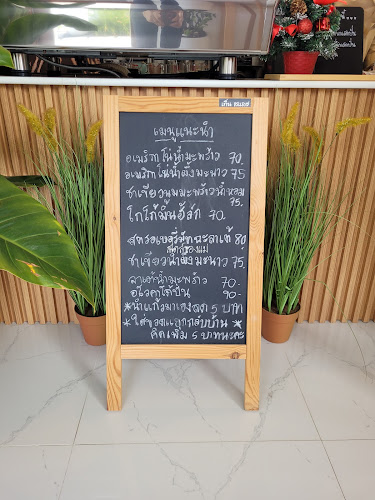 เก็บ ตะแลง
เมนูแนะนำ
อเมริกาโน่น้ำมะพร้าว 70.
อเมริกาโน่น้ำผึ้งมะนาว 75
ชาเขียวนมมะพร้าวน้ำหอม
75.
โกโก้มิ้นฮัลก์ 70.
สตรอเบอร์รี่มัทฉะลาเต้ 80
สูตรของแม่
ชาเขียวน้ำผึ้งมะนาว 75.
ลาเต้น้ำมะพร้าว 70.
อโวคาโด้ปั่น 90.-
*นำแก้วมาเองลด 5 บาท
*ใส่ขวดแยกกลับบ้าน*
คิดเพิ่ม 5 บาทนะคะ